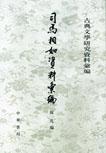 古典文學研究資料彙編
司馬相如資料彙編
中華書局